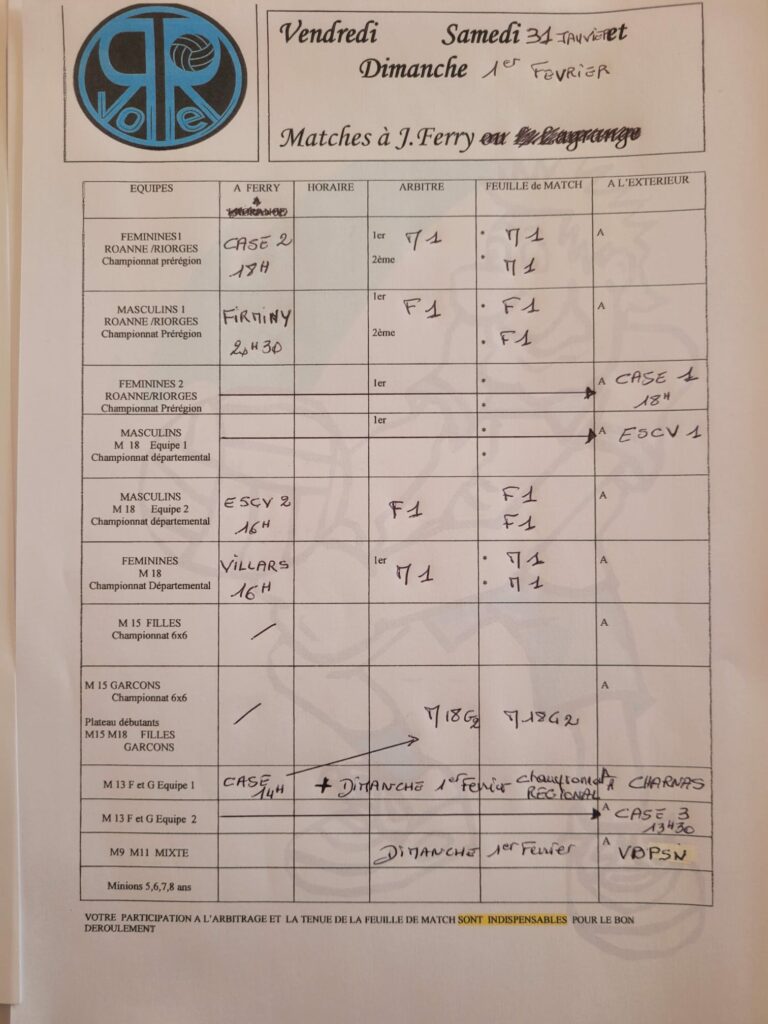 RR
Volley
Vendredi Samedi 31 JANVIER et
Dimanche 1er FEVRIER
Matches à J.Ferry ou L. Lagrange
EQUIPES
A FERRY
HORAIRE
ARBITRE
FEUILLE de MATCH
A L'EXTERIEUR
FEMININES1
ROANNE /RIORGES
Championnat prérégion
CASE 2
18H
1er 71
2ème
• 71
• 71
A
MASCULINS 1
ROANNE /RIORGES
Championnat Prérégion
FIRMINY
20H30
1er F1
2ème
• F1
• F1
A
FEMININES 2
ROANNE/RIORGES
Championnat Prérégion
1er
A CASE 1
18H
MASCULINS
M 18 Equipe 1
Championnat départemental
1er
A ESCV 1
MASCULINS
M 18 Equipe 2
Championnat départemental
ESCV 2
16H
F1
F1
F1
A
FEMININES
M 18
Championnat Départemental
VILLARS
16H
1er 71
• 71
• 71
A
M 15 FILLES
Championnat 6x6
/
A
M 15 GARCONS
Championnat 6x6
Plateau débutants
M15 M18 FILLES
GARCONS
/
718G2
718G2
A
M 13 F et G Equipe 1
CASE
14H
+ DIMANCHE 1er Fevrier Championnat
REGIONAL
A
A CHARNAS
M 13 F et G Equipe 2
A CASE 3
13H30
M9 M11 MIXTE
DIMANCHE 1er Fevrier
A VBPSN
Minions 5,6,7,8 ans
VOTRE PARTICIPATION A L'ARBITRAGE ET LA TENUE DE LA FEUILLE DE MATCH SONT INDISPENSABLES POUR LE BON
DEROULEMENT